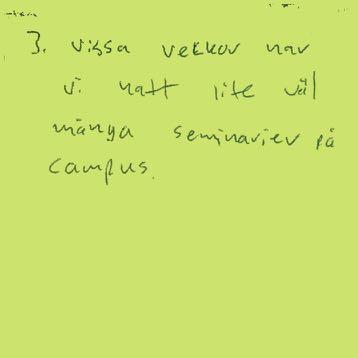 3. vissa veckor har
vi haft lite väl
många seminarier på
campus.